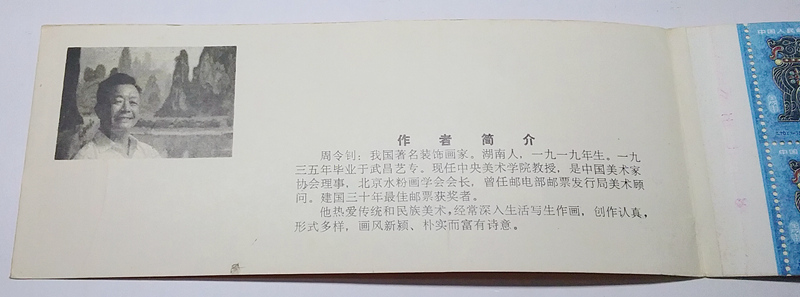 作者简介
周令钊：我国著名装饰画家。湖南人，一九一九年生。一九
三五年毕业于武昌艺专。现任中央美术学院教授，是中国美术家
协会理事，北京水粉画学会会长，曾任邮电部邮票发行局美术顾
问。建国三十年最佳邮票获奖者。
他热爱传统和民族美术，经常深入生活写生作画，创作认真，
形式多样，画风新颖、朴实而富有诗意。
中国人民
中国